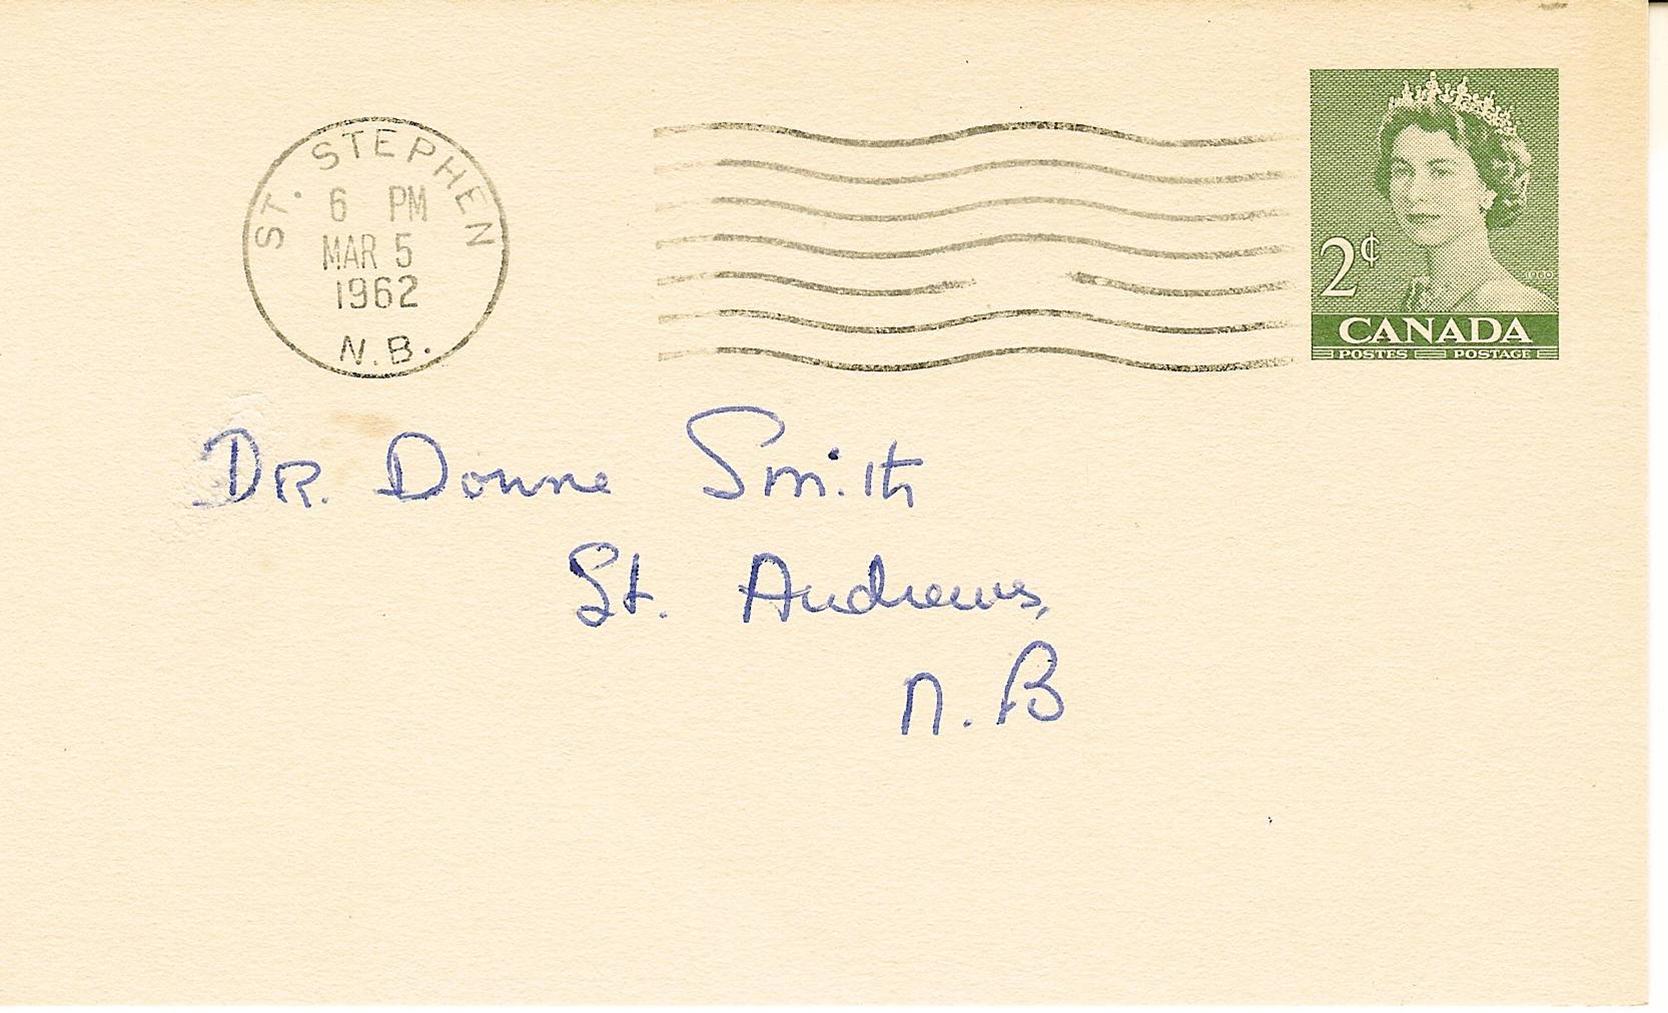 ST. STEPHEN
6 PM
MAR 5
1962
N.B.
2¢
CANADA
POSTES POSTAGE
DR. Donne Smith
St. Andrews,
N. B